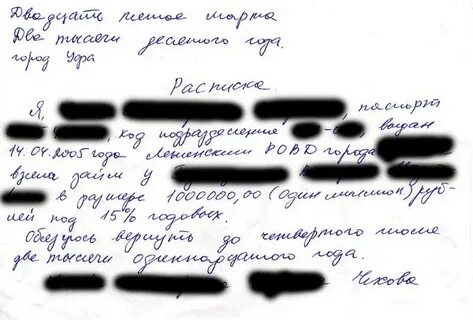 Двадцать пятое марта
Две тысячи десятого года.
город Уфа
Расписка.
Я, , паспорт
, код подразделения - , выдан
14.04.2005 года Ленинским РОВД города
взяла займ у
в размере 1000000,00 (Один миллион) руб-
лей под 15% годовых.
Обязуюсь вернуть до четвертого
две тысячи одиннадцатого года.
Чехова